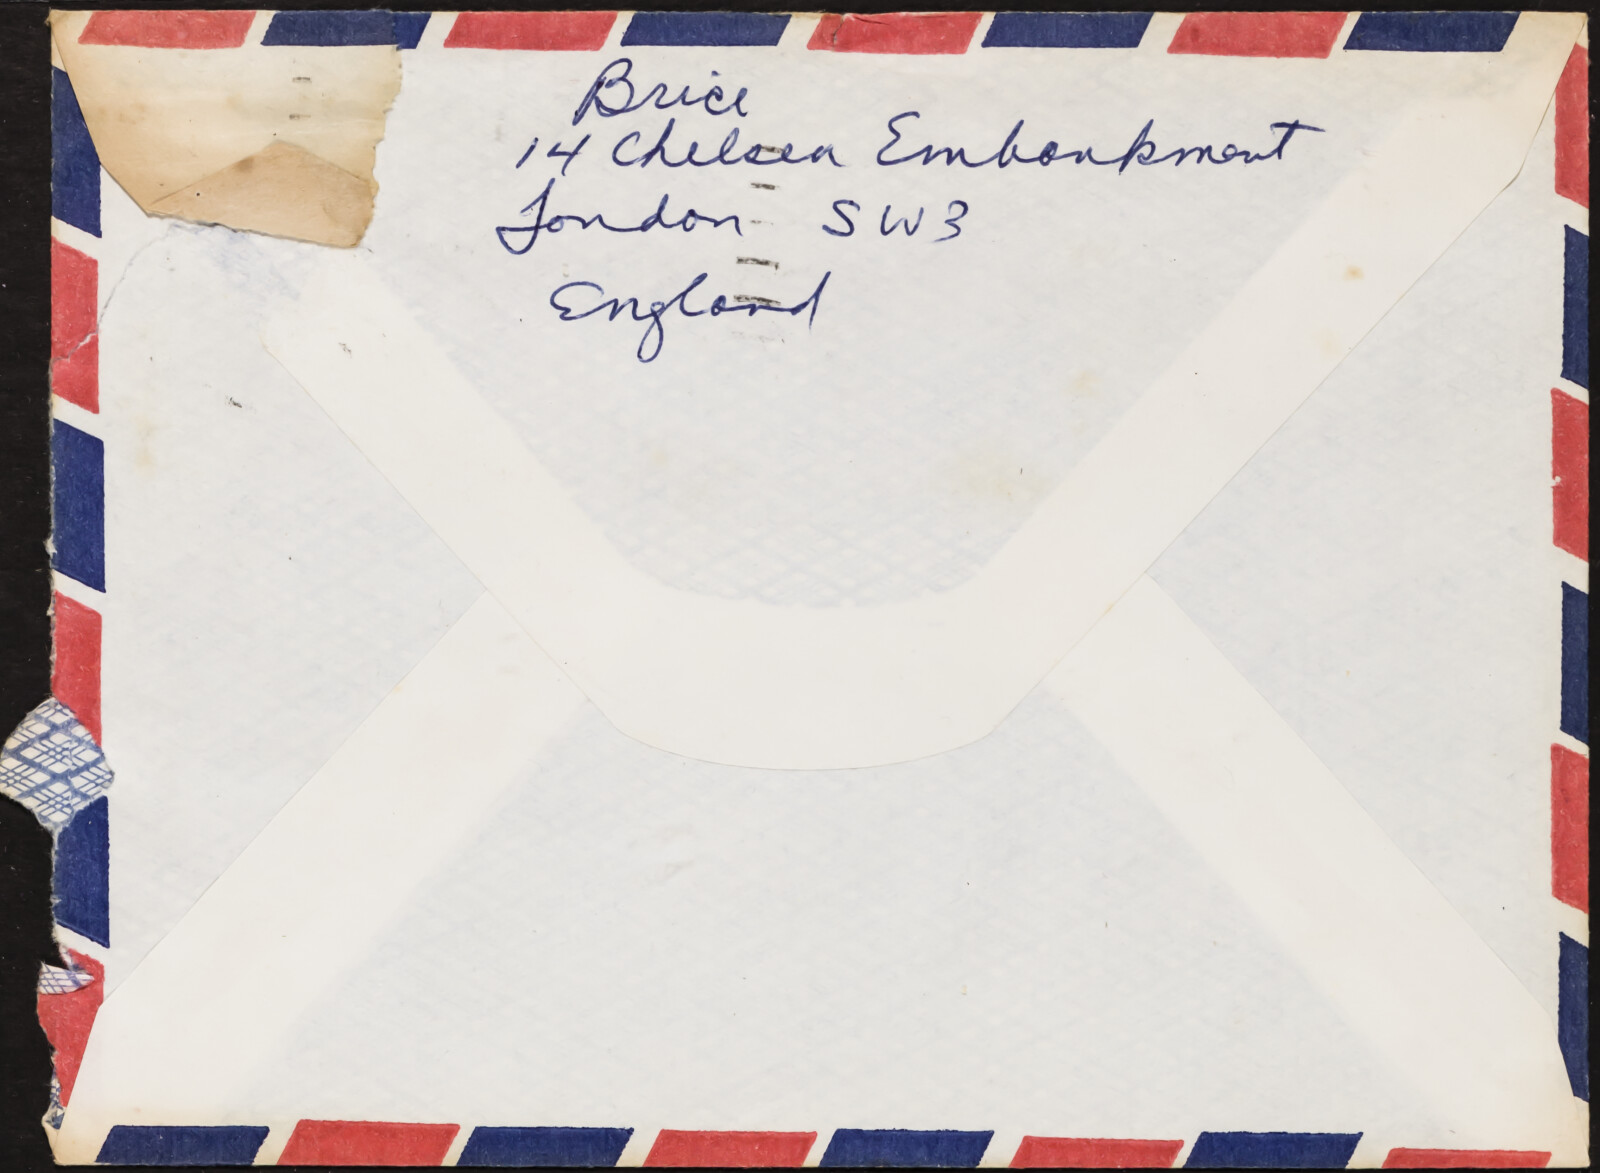 Brice
14 Chelsea Embankment
London SW3
England